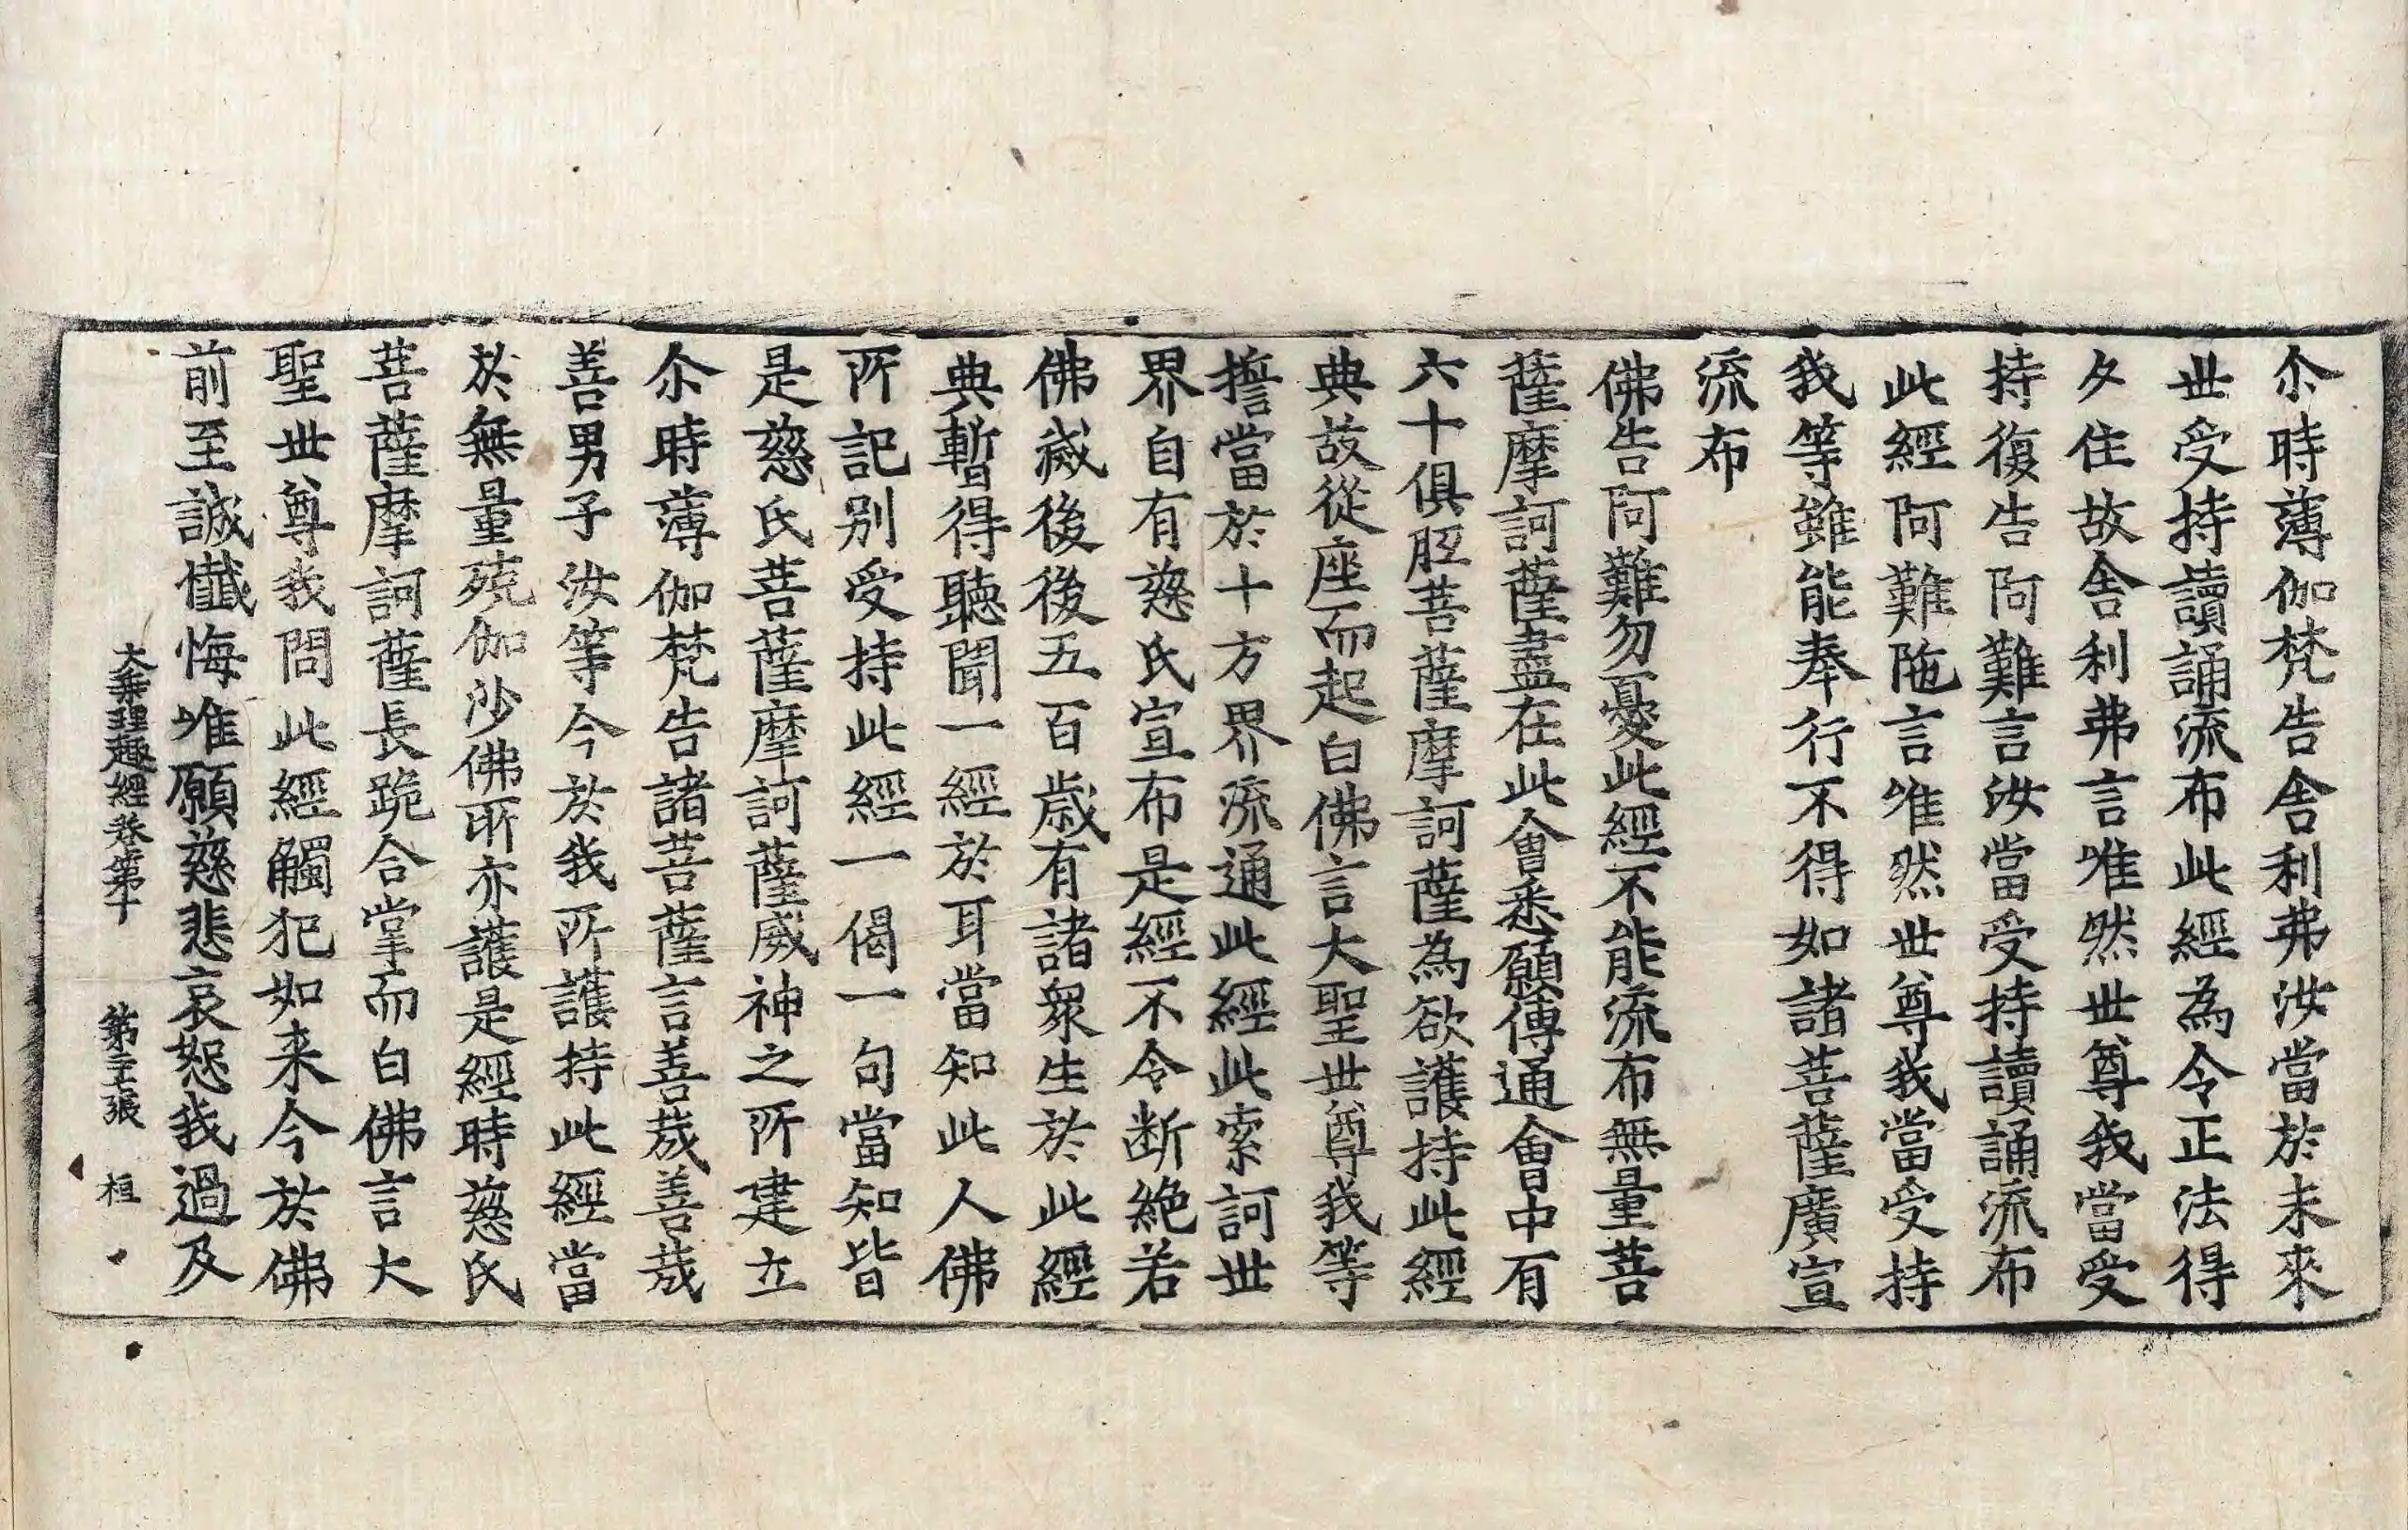 尒時薄伽梵告舎利弗汝當於未來
世受持讀誦流布此經為令正法得
久住故舎利弗言唯然世尊我當受
持復告阿難言汝當受持讀誦流布
此經阿難陁言唯然世尊我當受持
我等雖能奉行不得如諸菩薩廣宣
流布
佛告阿難勿憂此經不能流布無量菩
薩摩訶薩盡在此會悉願傳通會中有
六十俱胝菩薩摩訶薩為欲護持此經
典故從座而起白佛言大聖世尊我等
擔當於十方界流通此經此索訶世
界自有慈氏宣布是經不令断絶若
佛滅後後五百歳有諸衆生於此經
典暫得聽聞一經於耳當知此人佛
所記別受持此經一偈一句當知皆
是慈氏菩薩摩訶薩威神之所建立
尒時薄伽梵告諸菩薩言善㢤善㢤
善男子汝等今於我所護持此經當
於無量殑伽沙佛所亦護是經時慈氏
菩薩摩訶薩長跪合掌而白佛言大
聖世尊我問此經觸犯如来今於佛
前至誠懺悔唯願慈悲哀恕我過及
大乘理趣經卷第十 第二十張 桓